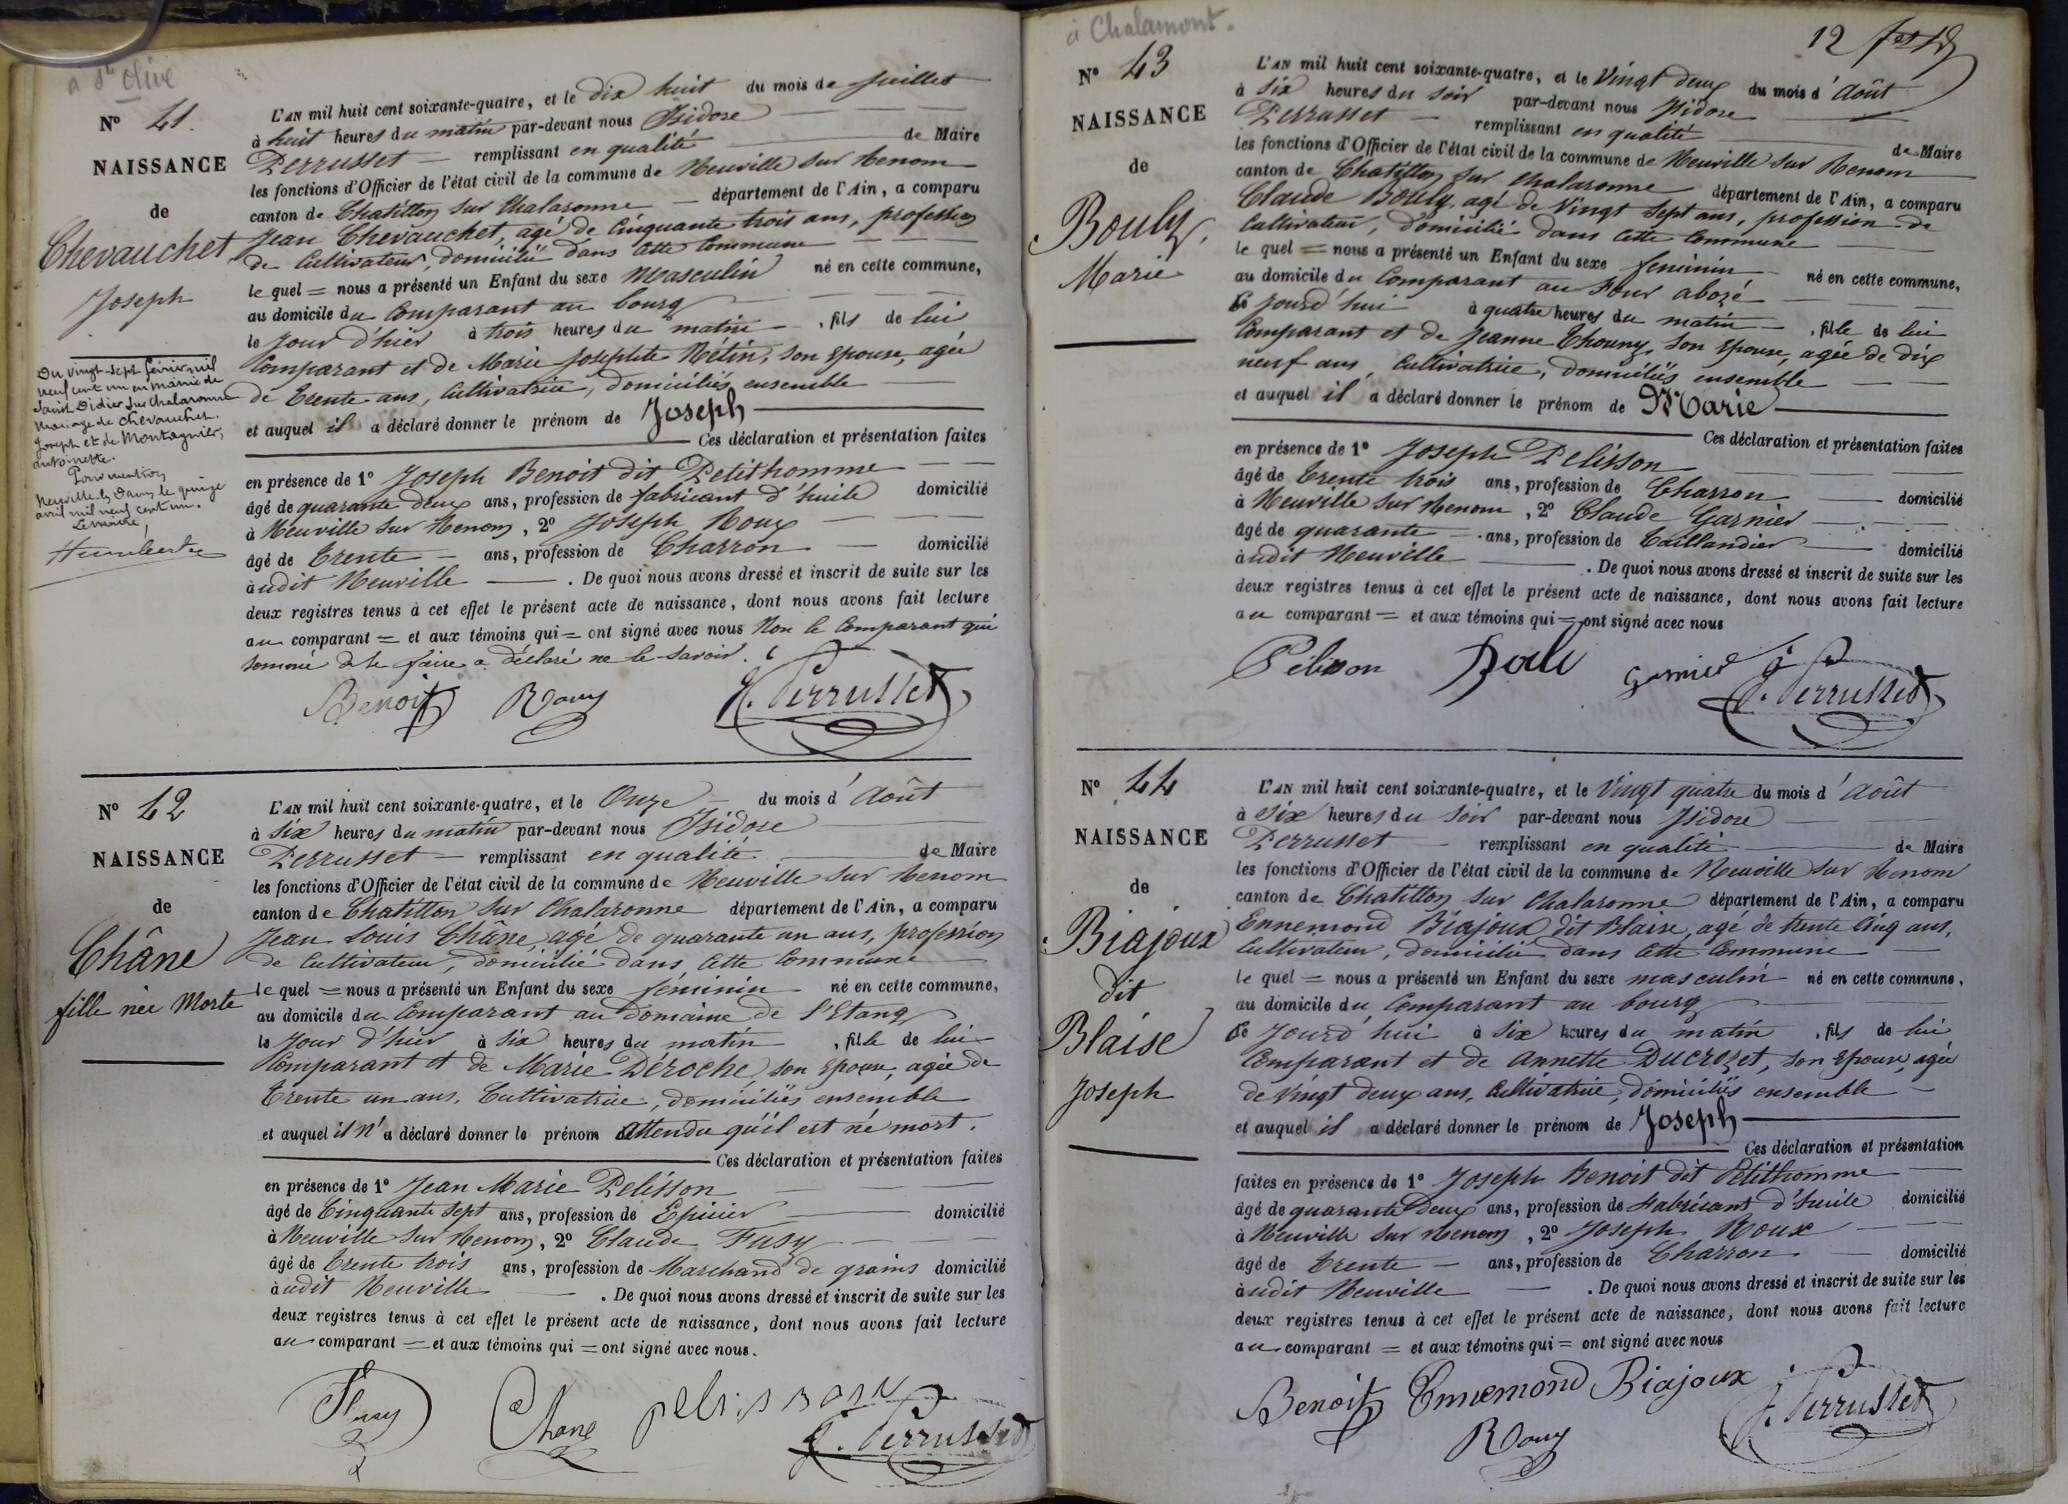 a Ste Olive
No 41.
NAISSANCE
de
Chevauchet
Joseph
Du vingt-sept février mil
neuf cent un en mairie de
Saint Didier sur Chalaronne
Mariage de Chevauchet
Joseph et de Montagnier,
antoinette.
Pour mention
Neuville les Dames le quinze
avril mil neuf cent un.
Le maire,
L'AN mil huit cent soixante-quatre, et le dix huit du mois de Juillet
à huit heures du matin par-devant nous Isidore
Perrusset remplissant en qualité de Maire
les fonctions d'Officier de l'état civil de la commune de Neuville sur Renom
canton de Chatillon sur Chalaronne département de l'Ain, a comparu
Jean Chevauchet, agé de Cinquante trois ans, profession
de Cultivateur, domicilié dans cette Commune
le quel = nous a présenté un Enfant du sexe Masculin né en cette commune,
au domicile du Comparant au bourg
le Jour d'hier à trois heures du matin, fils de lui
Comparant et de Marie Josephte Rétin, son Epouse, agée
de Trente ans, Cultivatrice, domiciliés ensemble
et auquel il a déclaré donner le prénom de Joseph
Ces déclaration et présentation faites
en présence de 1º Joseph Benoit dit Petithomme
âgé de quarante deux ans, profession de fabricant d'huile domicilié
à Neuville sur Renom, 2º Joseph Roux
âgé de Trente ans, profession de Charron domicilié
àudit Neuville. De quoi nous avons dressé et inscrit de suite sur les
deux registres tenus à cet effet le présent acte de naissance, dont nous avons fait lecture
au comparant = et aux témoins qui = ont signé avec nous Non le Comparant qui
sommé de le faire a déclaré ne le savoir.
Benoit Roux J. Perrusset
No 42
NAISSANCE
de
Châne
fille née Morte
L'AN mil huit cent soixante-quatre, et le Onze du mois d'Août
à Six heures du matin par-devant nous Isidore
Perrusset remplissant en qualité de Maire
les fonctions d'Officier de l'état civil de la commune de Neuville sur Renom
canton de Chatillon sur Chalaronne département de l'Ain, a comparu
Jean Louis Châne, agé de quarante un ans, profession
de Cultivateur, domicilié dans cette Commune
le quel = nous a présenté un Enfant du sexe féminin né en cette commune,
au domicile du Comparant au domaine de l'Etang
le Jour d'hier à Six heures du matin, fille de lui
Comparant et de Marie Déroche, son Epouse, agée de
Trente un ans, Cultivatrice, domiciliés ensemble
et auquel il n'a déclaré donner le prénom attendu qu'il est né mort.
Ces déclaration et présentation faites
en présence de 1º Jean Marie Pelisson
âgé de Cinquante Sept ans, profession de Epicier domicilié
à Neuville sur Renom, 2º Claude Fusy
âgé de Trente trois ans, profession de Marchand de grains domicilié
àudit Neuville. De quoi nous avons dressé et inscrit de suite sur les
deux registres tenus à cet effet le présent acte de naissance, dont nous avons fait lecture
au comparant = et aux témoins qui = ont signé avec nous.
Fusy Chane pelisson J. Perrusset
à Chalamont.
12
No 43
NAISSANCE
de
Bouly,
Marie
L'AN mil huit cent soixante-quatre, et le Vingt deux du mois d'Août
à Six heures du soir par-devant nous Isidore
Perrusset remplissant en qualité de Maire
les fonctions d'Officier de l'état civil de la commune de Neuville sur Renom
canton de Chatillon sur Chalaronne département de l'Ain, a comparu
Claude Bouly, agé de Vingt Sept ans, profession de
Cultivateur, domicilié dans cette Commune
le quel = nous a présenté un Enfant du sexe féminin né en cette commune,
au domicile du Comparant au Four abozé
Ce Jourd'hui à quatre heures du matin, fille de lui
Comparant et de Jeanne Thouny, son Epouse, agée de dix
neuf ans, Cultivatrice, domiciliés ensemble
et auquel il a déclaré donner le prénom de Marie
Ces déclaration et présentation faites
en présence de 1º Joseph Pelisson
âgé de Trente trois ans, profession de Charron domicilié
à Neuville sur Renom, 2º Claude Garnier
âgé de quarante ans, profession de Taillandier domicilié
àudit Neuville. De quoi nous avons dressé et inscrit de suite sur les
deux registres tenus à cet effet le présent acte de naissance, dont nous avons fait lecture
au comparant = et aux témoins qui = ont signé avec nous
Pelisson Garnier J. Perrusset
No 44
NAISSANCE
de
Biajoux
dit
Blaise
Joseph
L'AN mil huit cent soixante-quatre, et le Vingt quatre du mois d'Août
à Six heures du Soir par-devant nous Isidore
Perrusset remplissant en qualité de Maire
les fonctions d'Officier de l'état civil de la commune de Neuville sur Renom
canton de Chatillon sur Chalaronne département de l'Ain, a comparu
Ennemond Biajoux dit Blaise, agé de trente Cinq ans,
Cultivateur, domicilié dans cette Commune
le quel = nous a présenté un Enfant du sexe masculin né en cette commune,
au domicile du Comparant au bourg
Ce Jourd'hui à Six heures du matin, fils de lui
Comparant et de Annette Ducrozet, son Epouse, agée
de Vingt deux ans, Cultivatrice, domiciliés ensemble
et auquel il a déclaré donner le prénom de Joseph
Ces déclaration et présentation
faites en présence de 1º Joseph Benoit dit Petithomme
âgé de quarante Deux ans, profession de Fabricant d'huile domicilié
à Neuville sur Renom, 2º Joseph Roux
âgé de Trente ans, profession de Charron domicilié
àudit Neuville. De quoi nous avons dressé et inscrit de suite sur les
deux registres tenus à cet effet le présent acte de naissance, dont nous avons fait lecture
au comparant = et aux témoins qui = ont signé avec nous
Benoit Ennemond Biajoux J. Perrusset
Roux